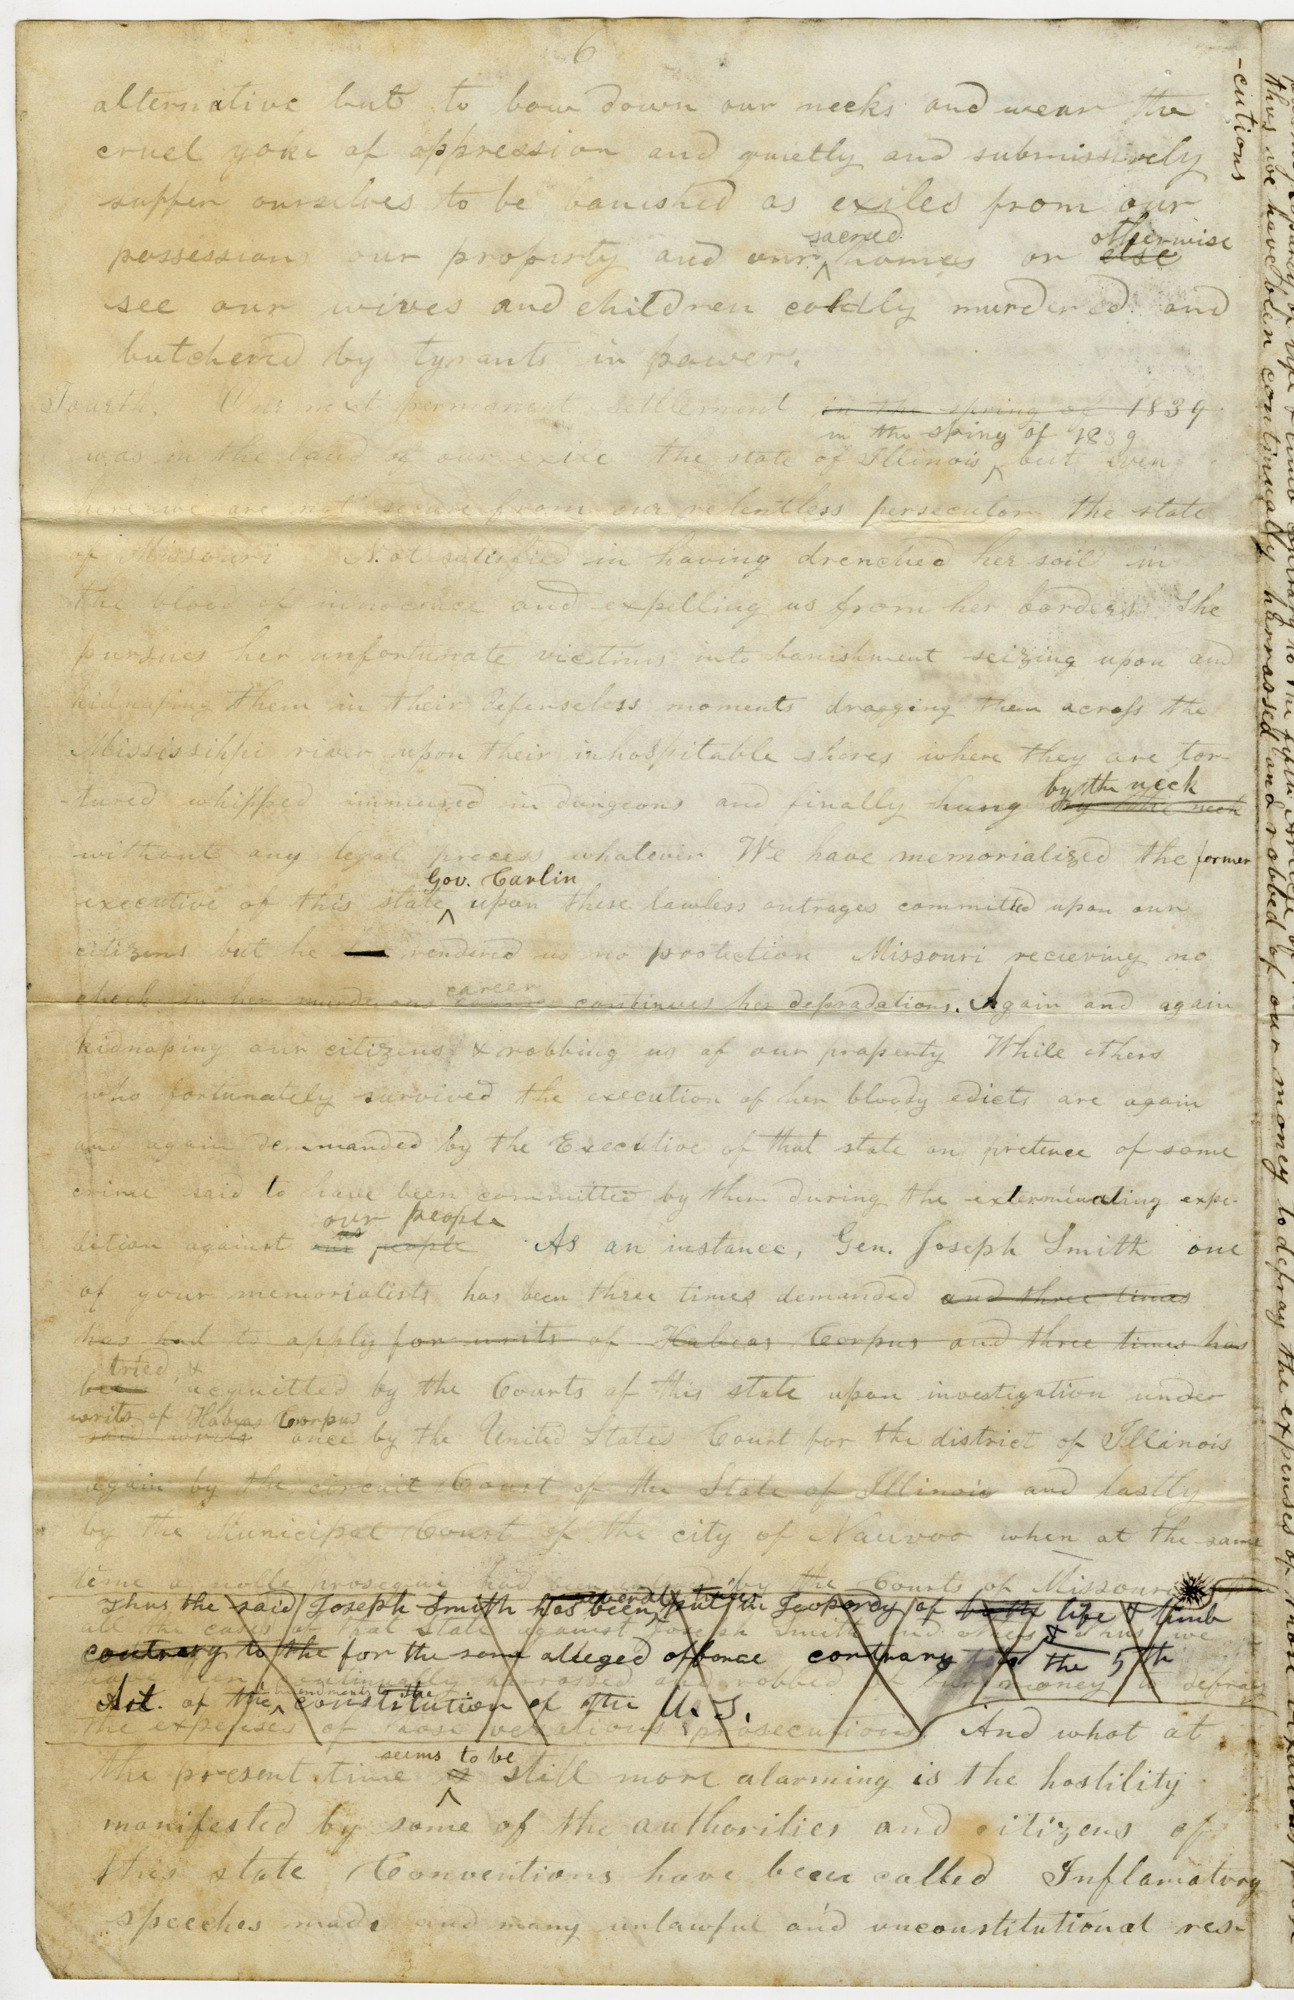 6
alternative but to bow down our necks and wear the
cruel yoke of oppression and quietly and submissively
suffer ourselves to be banished as exiles from our
sacred otherwise
possessions our property and our ^ homes or else
see our wives and children coldly murdered and
butchered by tyrants in power.
Fourth. Our next permanent settlement in the spring of 1839
in the spring of 1839
was in the land of our exile the state of Illinois ^ but even
here we are not secure from our relentless persecutor the state
of Missouri Not satisfied in having drenched her soil in
the blood of innocence and expelling us from her borders She
pursues her unfortunate victims into banishment seizing upon and
kidnaping them in their defenseless moments dragging them across the
Mississippi river upon their inhospitable shores where they are tor-
by the neck
-tured whipped immured in dungeons and finally hung by the neck
without any legal process whatever We have memorialized the former
Gov. Carlin
executive of this state ^ upon these lawless outrages committed upon our
citizens but he rendered us no protection Missouri recieving no
career
check in her murderous course continues her depradations. Again and again
kidnaping our citizens & robbing us of our property While others
who fortunately survived the execution of her bloody edicts are again
and again demmanded by the Executive of that state on pretence of some
crime said to have been committed by them during the exterminating expe-
our people
dition against our people As an instance, Gen. Joseph Smith one
of your memorialists has been three times demanded and three times
has had to apply for writs of Habeas Corpus and three times has
tried, &
been acquitted by the Courts of this state upon investigation under
writs of Habeas Corpus
said writs once by the United States Court for the district of Illinois
again by the circuit Court of the State of Illinois and lastly
by the Municipal Court of the city of Nauvoo when at the same
time a nolle prosequi had been entered by the Courts of Missouri upon
several times
Thus the said Joseph Smith has been ^ put in Jeopardy of both life & limb
all the cases of that State against Joseph Smith and others & thus we
contrary to the for the same alleged offence contrary to the 5th
have been continually harrassed and robbed of our money to defray
amendments to the
Art. of the ^ constitution of the U. S.
the expenses of those vexatious prosecutions And what at
seems to be
the present time is ^ still more alarming is the hostility
manifested by some of the authorities and citizens of
this state Conventions have been called Inflamatory
speeches made and many unlawful and unconstitutional res-
thus we have been continually harrassed and robbed of our money to defray the expenses of those vexatious prose
-cutions